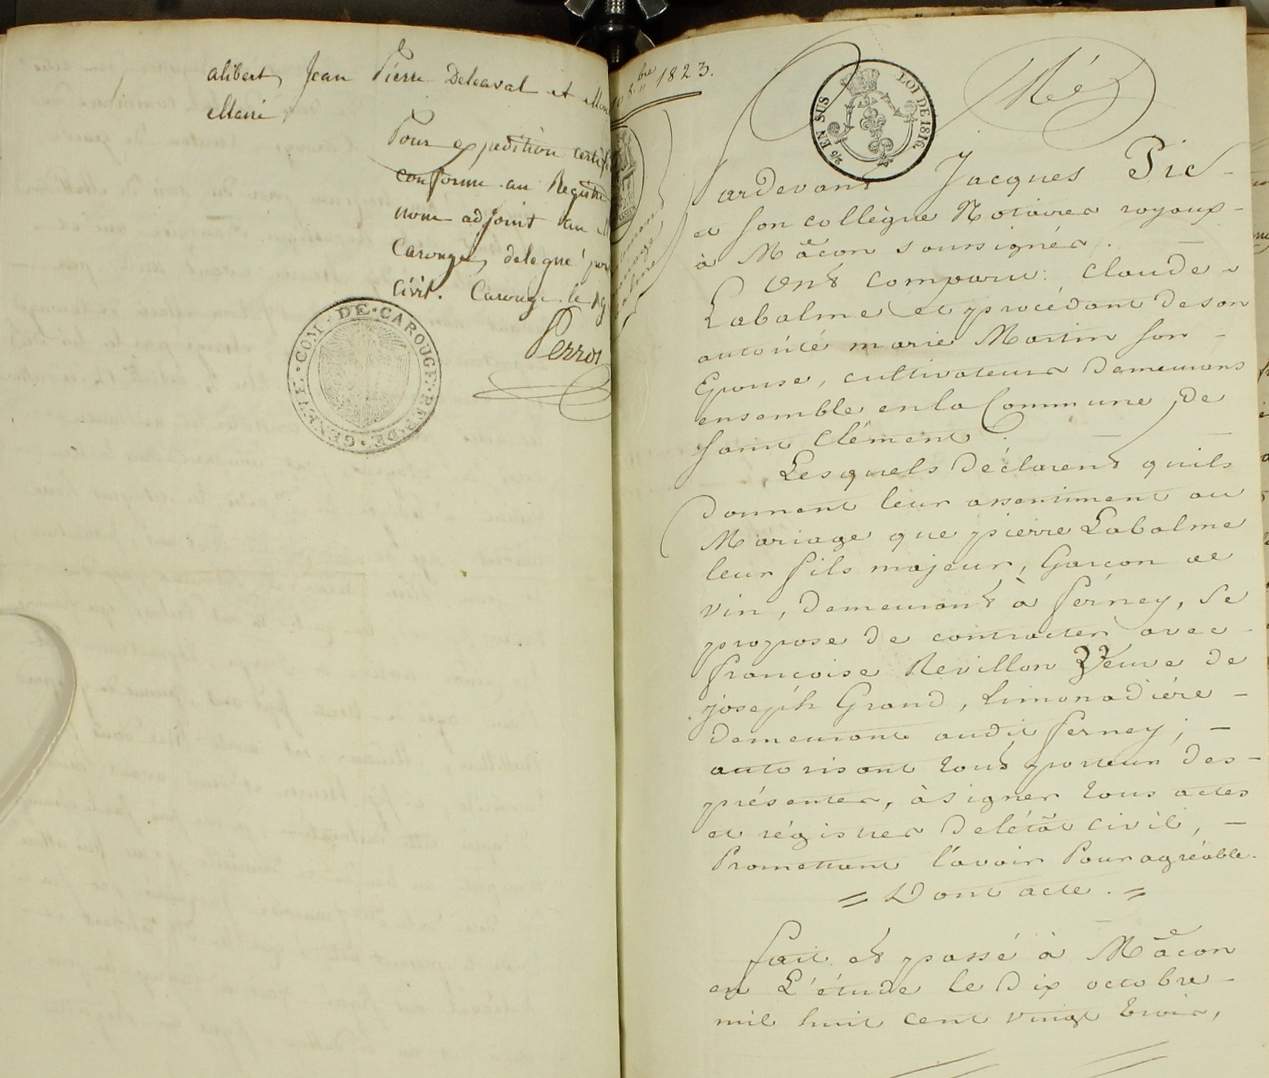 alibert, Jean Pierre Delaval et
Maire
Pour expédition certif
conforme au Registre
nous adjoint
Carouge, délégué pour
civil. Carouge le
Perrot
COM · DE · CAROUGE · REP · DE · GENEVE
bre 1823.
EN SUS
LOI DE 1816.
Pardevant Jacques Pic
et son collègue Notaires royaux
à Mâcon soussignés.
Ont comparu: Claude
Labalme et procédant de son
autorité marie Martin son
Epouse, cultivateurs demeurans
ensemble en la Commune de
Saint Clément.
Lesquels déclarent quils
donnent leur assentiment au
Mariage que pierre Labalme
leur fils majeur, Garçon de
vin, demeurant à ferney, se
propose de contracter avec
françoise Revillon Veuve de
joseph Grand, Limonadière
demeurante audit ferney;
autorisant tout porteur des
présentes, à signer tous actes
et régistres de létat civil,
Promettant l'avoir Pour agréable.
= Dont acte. =
fait et passé à Mâcon
en L'étude le dix octobre
mil huit cent vingt trois,